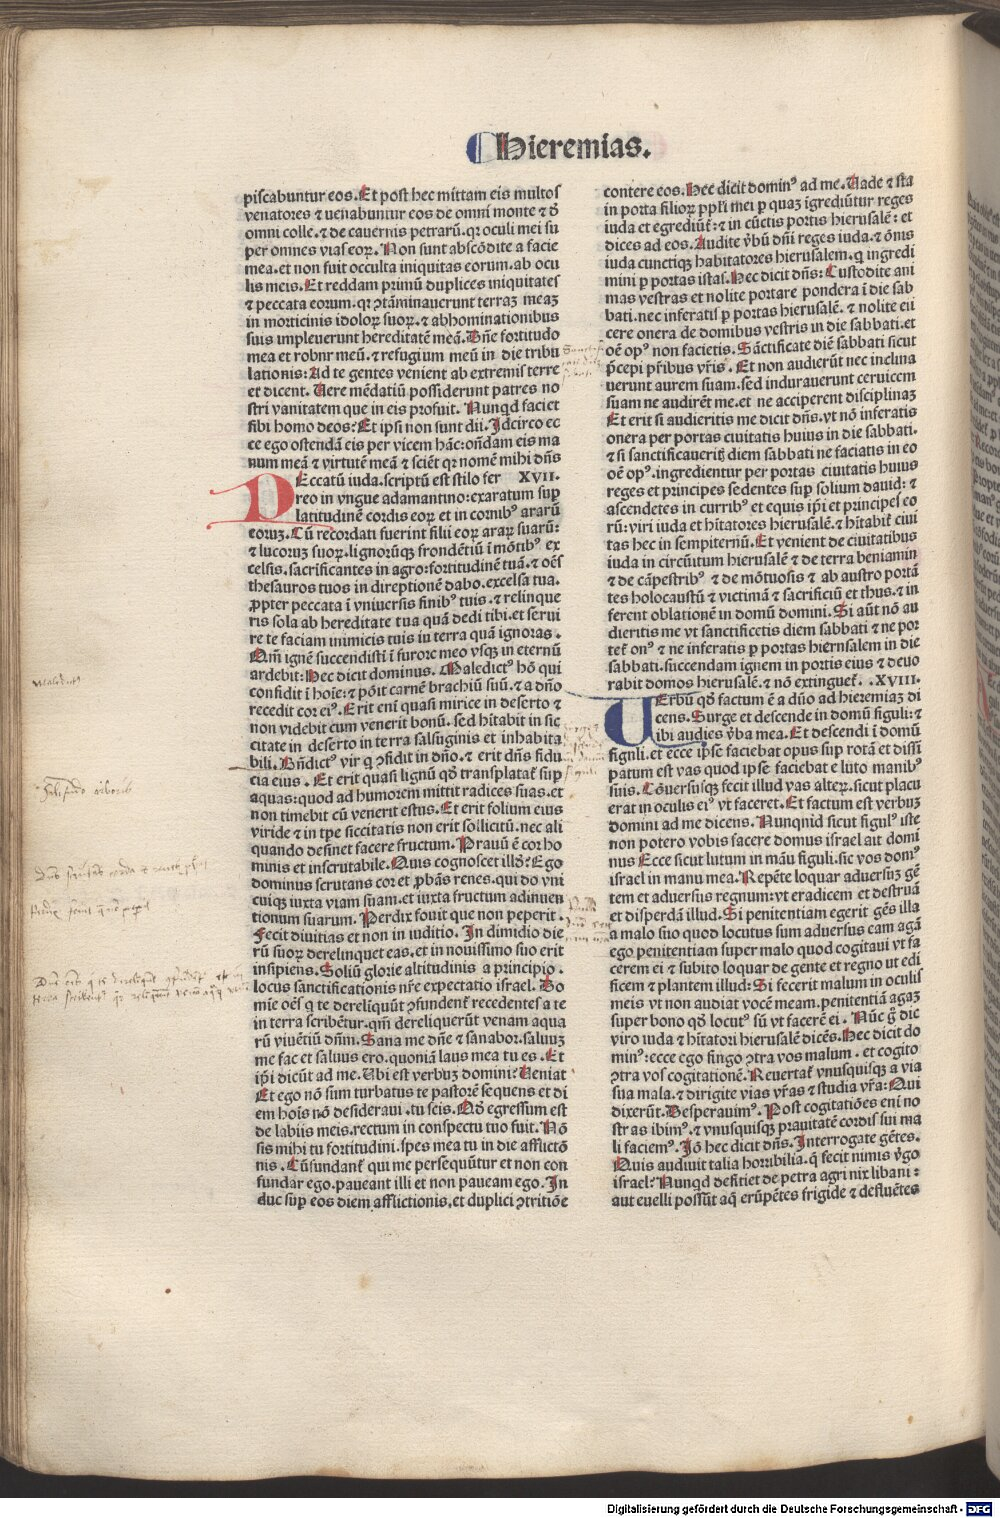 Hieremias.
piscabuntur eos. Et post hec mittam eis multos
venatores ⁊ uenabuntur eos de omni monte ⁊ đ
omni colle. ⁊ de cauernis petrarū. qr oculi mei su
per omnes vias eoꝝ. Non sunt abscōdite a facie
mea. et non fuit occulta iniquitas eorum. ab ocu
lis meis. Et reddam primū duplices iniquitates
⁊ peccata eorum. qr ꝯtāminauerunt terraꝫ meaꝫ
in morticinis idoloꝝ suoꝝ. ⁊ abhominationibus
suis impleuerunt hereditatē meā. Dn̄e fortitudo
mea et robur meū. ⁊ refugium meū in die tribu
lationis: Ad te gentes venient ab extremis terre
et dicent. Uere mēdatiū possiderunt patres no
stri vanitatem que in eis profuit. Nunqd faciet
sibi homo deos: Et ipsi non sunt dii. Idcirco ec
ce ego ostendā eis per vicem hāc: oñdam eis ma
num meā ⁊ virtutē meā ⁊ scient qr nomē mihi dn̄s
PEccatū iuda. scriptū est stilo fer XVII.
reo in vngue adamantino: exaratum suꝑ
latitudinē cordis eoꝝ et in cornibꝰ ararū
eoruꝫ. Cū recordati fuerint filii eoꝝ araꝝ suarū:
⁊ lucoruꝫ suoꝝ. lignorūqꝫ frondētiū ī mōtibꝰ ex
celsis. sacrificantes in agro: fortitudinē tuā. ⁊ oēs
thesauros tuos in direptionē dabo. excelsa tua.
ꝓpter peccata ī vniuersis finibꝰ tuis. ⁊ relinque
ris sola ab hereditate tua quā dedi tibi. et serui
re te faciam inimicis tuis in terra quā ignoras.
Qm̄ ignē succendisti ī furore meo vsqꝫ in eternū
ardebit: Hec dicit dominus. Maledictꝰ hō qui
confidit ī hoīe: ⁊ pōit carnē brachiū suū. ⁊ a dn̄o
recedit cor eiꝰ. Erit enī quasi mirice in deserto ⁊
non videbit cum venerit bonū. sed hītabit in sic
citate in deserto in terra salsuginis et inhabita
bili. Bn̄dictꝰ vir q ꝯfidit in dn̄o. ⁊ erit dn̄s fidu
cia eius. Et erit quasi lignū qđ transplantat suꝑ
aquas: quod ad humorem mittit radices suas. et
non timebit cū venerit estus. Et erit folium eius
viride ⁊ in tpe siccitatis non erit sollicitū. nec ali
quando desinet facere fructum. Prauū ē cor ho
minis et inscrutabile. Quis cognoscet illđ? Ego
dominus scrutans cor et ꝓbās renes. qui do vni
cuiqꝫ iuxta viam suam. et iuxta fructum adinuen
tionum suarum. Perdix fouit que non peperit.
Fecit diuitias et non in iuditio. In dimidio die
rū suoꝝ derelinquet eas. et in nouissimo suo erit
insipiens. Soliū glorie altitudinis a principio.
locus sanctificationis nr̄e expectatio israel. Do
mie oēs q te dereliquūt ꝯfundent recedentes a te
in terra scribētur. qm̄ dereliquerūt venam aqua
rū viuētiū dn̄m. Sana me dn̄e ⁊ sanabor. saluuꝫ
me fac et saluus ero. quoniā laus mea tu es. Et
ip̄i dicūt ad me. Ubi est verbuꝫ domini? Ueniat
Et ego nō sum turbatus te pastorē sequens et di
em hoīs nō desideraui. tu scis. Qđ egressum est
de labiis meis. rectum in conspectu tuo fuit. Nō
sis mihi tu fortitudini. spes mea tu in die afflictō
nis. Cūfundant qui me persequūtur et non con
fundar ego. paueant illi et non paueam ego. In
duc suꝑ eos diem afflictionis. et duplici ꝯtritiōe
contere eos. Hec dicit dominꝰ ad me. Uade ⁊ sta
in porta filioꝝ ppl̄i mei ꝑ quaꝫ īgrediūtur reges
iuda et egrediūt: ⁊ in cūctis portis hierusalē: et
dices ad eos. Audite v̄bū dn̄i reges iuda. ⁊ ōnis
iuda cunctiqꝫ habitatores hierusalem. q ingredi
mini ꝑ portas istas. Hec dicit dn̄s: Custodite ani
mas vestras et nolite portare pondera ī die sab
bati. nec inferatis ꝑ portas hierusalē. ⁊ nolite eii
cere onera de domibus vestris in die sabbati. et
oē opꝰ non facietis. Sāctificate diē sabbati sicut
p̄cepi pr̄ibus vr̄is. Et non audierūt nec inclina
uerunt aurem suam. sed indurauerunt ceruicem
suam ne audirēt me. et ne acciperent disciplinaꝫ
Et erit si audieritis me dicit dn̄s. vt nō inferatis
onera per portas ciuitatis huius in die sabbati.
⁊ si sanctificaueritꝭ diem sabbati ne faciatis in eo
oē opꝰ. ingredientur per portas ciuitatis huius
reges et principes sedentes suꝑ solium dauid: ⁊
ascendetes in curribꝰ et equis ip̄i et principes eo
rū: viri iuda et hītatores hierusalē. ⁊ hītabit ciui
tas hec in sempiternū. Et venient de ciuitatibus
iuda in circūitum hierusalē ⁊ de terra beniamin
⁊ de cāpestribꝰ ⁊ de mōtuosis ⁊ ab austro portā
tes holocaustū ⁊ victimā ⁊ sacrificiū et thus. ⁊ in
ferent oblationē in domū domini. Si aūt nō au
dieritis me vt sanctificetis diem sabbati ⁊ ne por
tet onꝰ ⁊ ne inferatis ꝑ portas hierusalem in die
sabbati. succendam ignem in portis eius ⁊ deuo
rabit domos hierusalē. ⁊ nō extinguet. .XVIII.
UErbū qđ factum ē a dn̄o ad hieremiaꝫ di
cens. Surge et descende in domū figuli: ⁊
ibi audies v̄ba mea. Et descendi ī domū
figuli. et ecce ip̄se faciebat opus suꝑ rotā et dissi
patum est vas quod ip̄se faciebat e luto manibꝰ
suis. Cōuersusqꝫ fecit illud vas alteꝝ. sicut placu
erat in oculis eiꝰ vt faceret. Et factum est verbuꝫ
domini ad me dicens. Nunqnid sicut figulꝰ iste
non potero vobis facere domus israel ait domi
nus Ecce sicut lutum in māu figuli. sic vos domꝰ
israel in manu mea. Repēte loquar aduersuꝫ gē
tem et aduersus regnum: vt eradicem et destruā
et disperdā illud. Si penitentiam egerit gēs illa
a malo suo quod locutus sum aduersus eam agā
ego penitentiam super malo quod cogitaui vt fa
cerem ei ⁊ subito loquar de gente et regno ut edi
ficem ⁊ plantem illud: Si fecerit malum in oculis
meis vt non audiat vocē meam. penitentiā agaꝫ
super bono qđ locutꝰ sū vt facerē ei. Nūc ḡ dic
viro iuda ⁊ hītatori hierusalē dicēs. Hec dicit do
minꝰ: ecce ego fingo ꝯtra vos malum. et cogito
ꝯtra vos cogitationē. Reuertat vnusquisqꝫ a via
sua mala. ⁊ dirigite vias vr̄as ⁊ studia vr̄a: Qui
dixerūt. Desperauimꝰ. Post cogitatiōes eni no
stras ibimꝰ. ⁊ vnusquisqꝫ prauitatē cordis sui ma
li faciemꝰ. Iō hec dicit dn̄s. Interrogate gētes.
Quis audiuit talia horribilia. q̄ fecit nimis v̄go
israel? Nunqd deficiet de petra agri nix libani:
aut euelli possūt aq̄ erūpētes frigide ⁊ defluētes
Digitalisierung gefördert durch die Deutsche Forschungsgemeinschaft - DFG